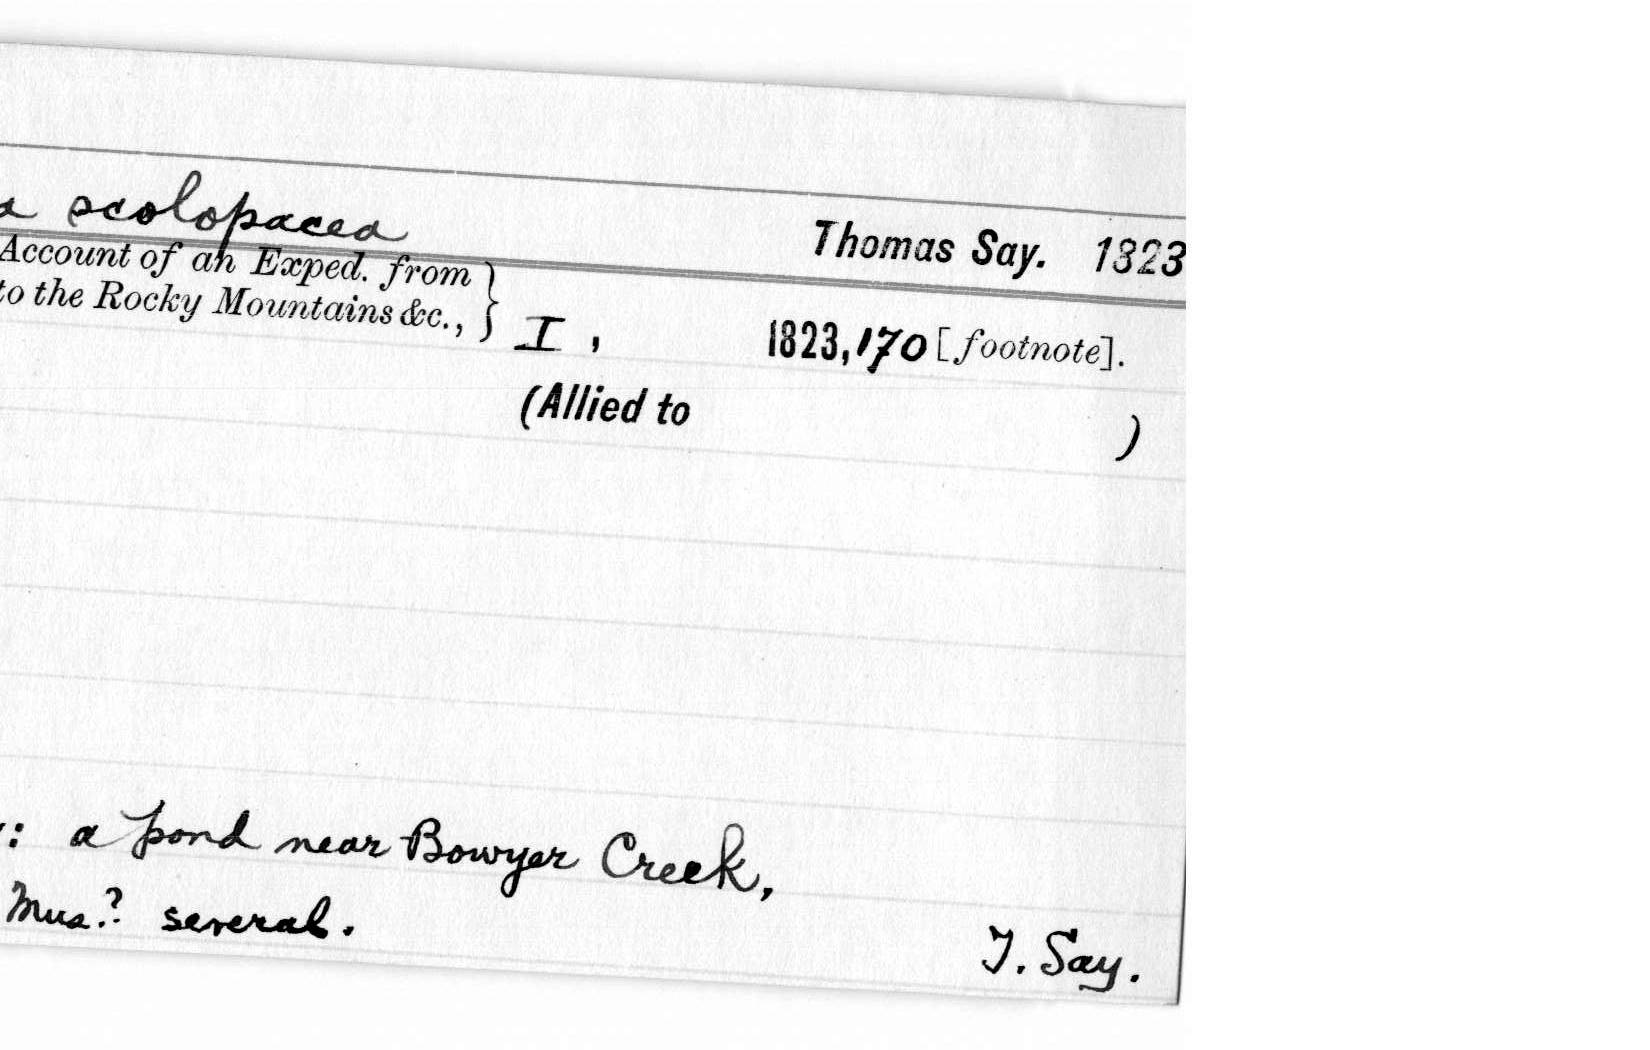 a scolopacea Thomas Say. 1823
Account of an Exped. from
to the Rocky Mountains &c., } I, 1823, 170 [footnote].
(Allied to )
: a pond near Bowyer Creek,
Mus.? several.
T. Say.